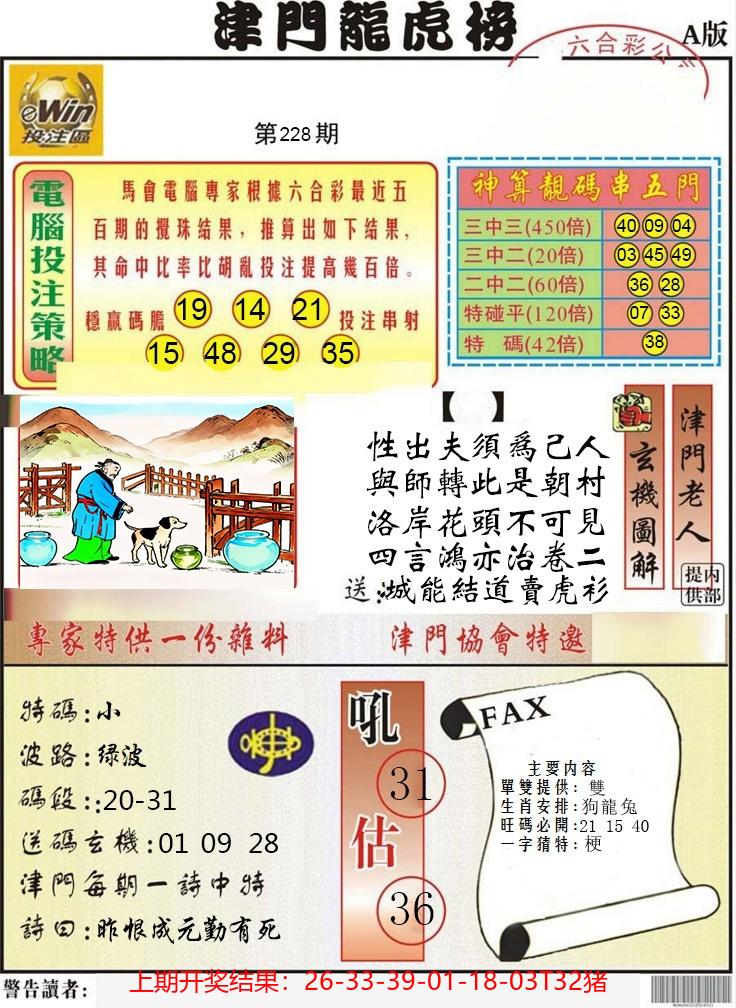 津門龍虎榜
A版
六合彩公
eWin
投注區
第228期
電腦投注策略
馬會電腦專家根據六合彩最近五
百期的攪珠结果，推算出如下结果，
其命中比率比胡亂投注提高幾百倍。
穩赢碼膽 19 14 21 投注串射
15 48 29 35
神算靚碼串五門
三中三(450倍) 40 09 04
三中二(20倍) 03 45 49
二中二(60倍) 36 28
特碰平(120倍) 07 33
特 碼(42倍) 38
【 】
性出夫須為己人
與師轉此是朝村
洛岸花頭不可見
四言鴻亦治卷二
送:城能結道賣虎衫
玄機圖解
津門老人
内部提供
專家特供一份雜料
津門協會特邀
特碼:小
波路:绿波
碼段::20-31
送碼玄機:01 09 28
津门每期一詩中特
詩曰:昨恨成元勤有死
吼
31
估
36
FAX
主要内容
單雙提供: 雙
生肖安排:狗龍兔
旺碼必開:21 15 40
一字猜特:梗
警告讀者:
上期开奖结果：26-33-39-01-18-03T32猪